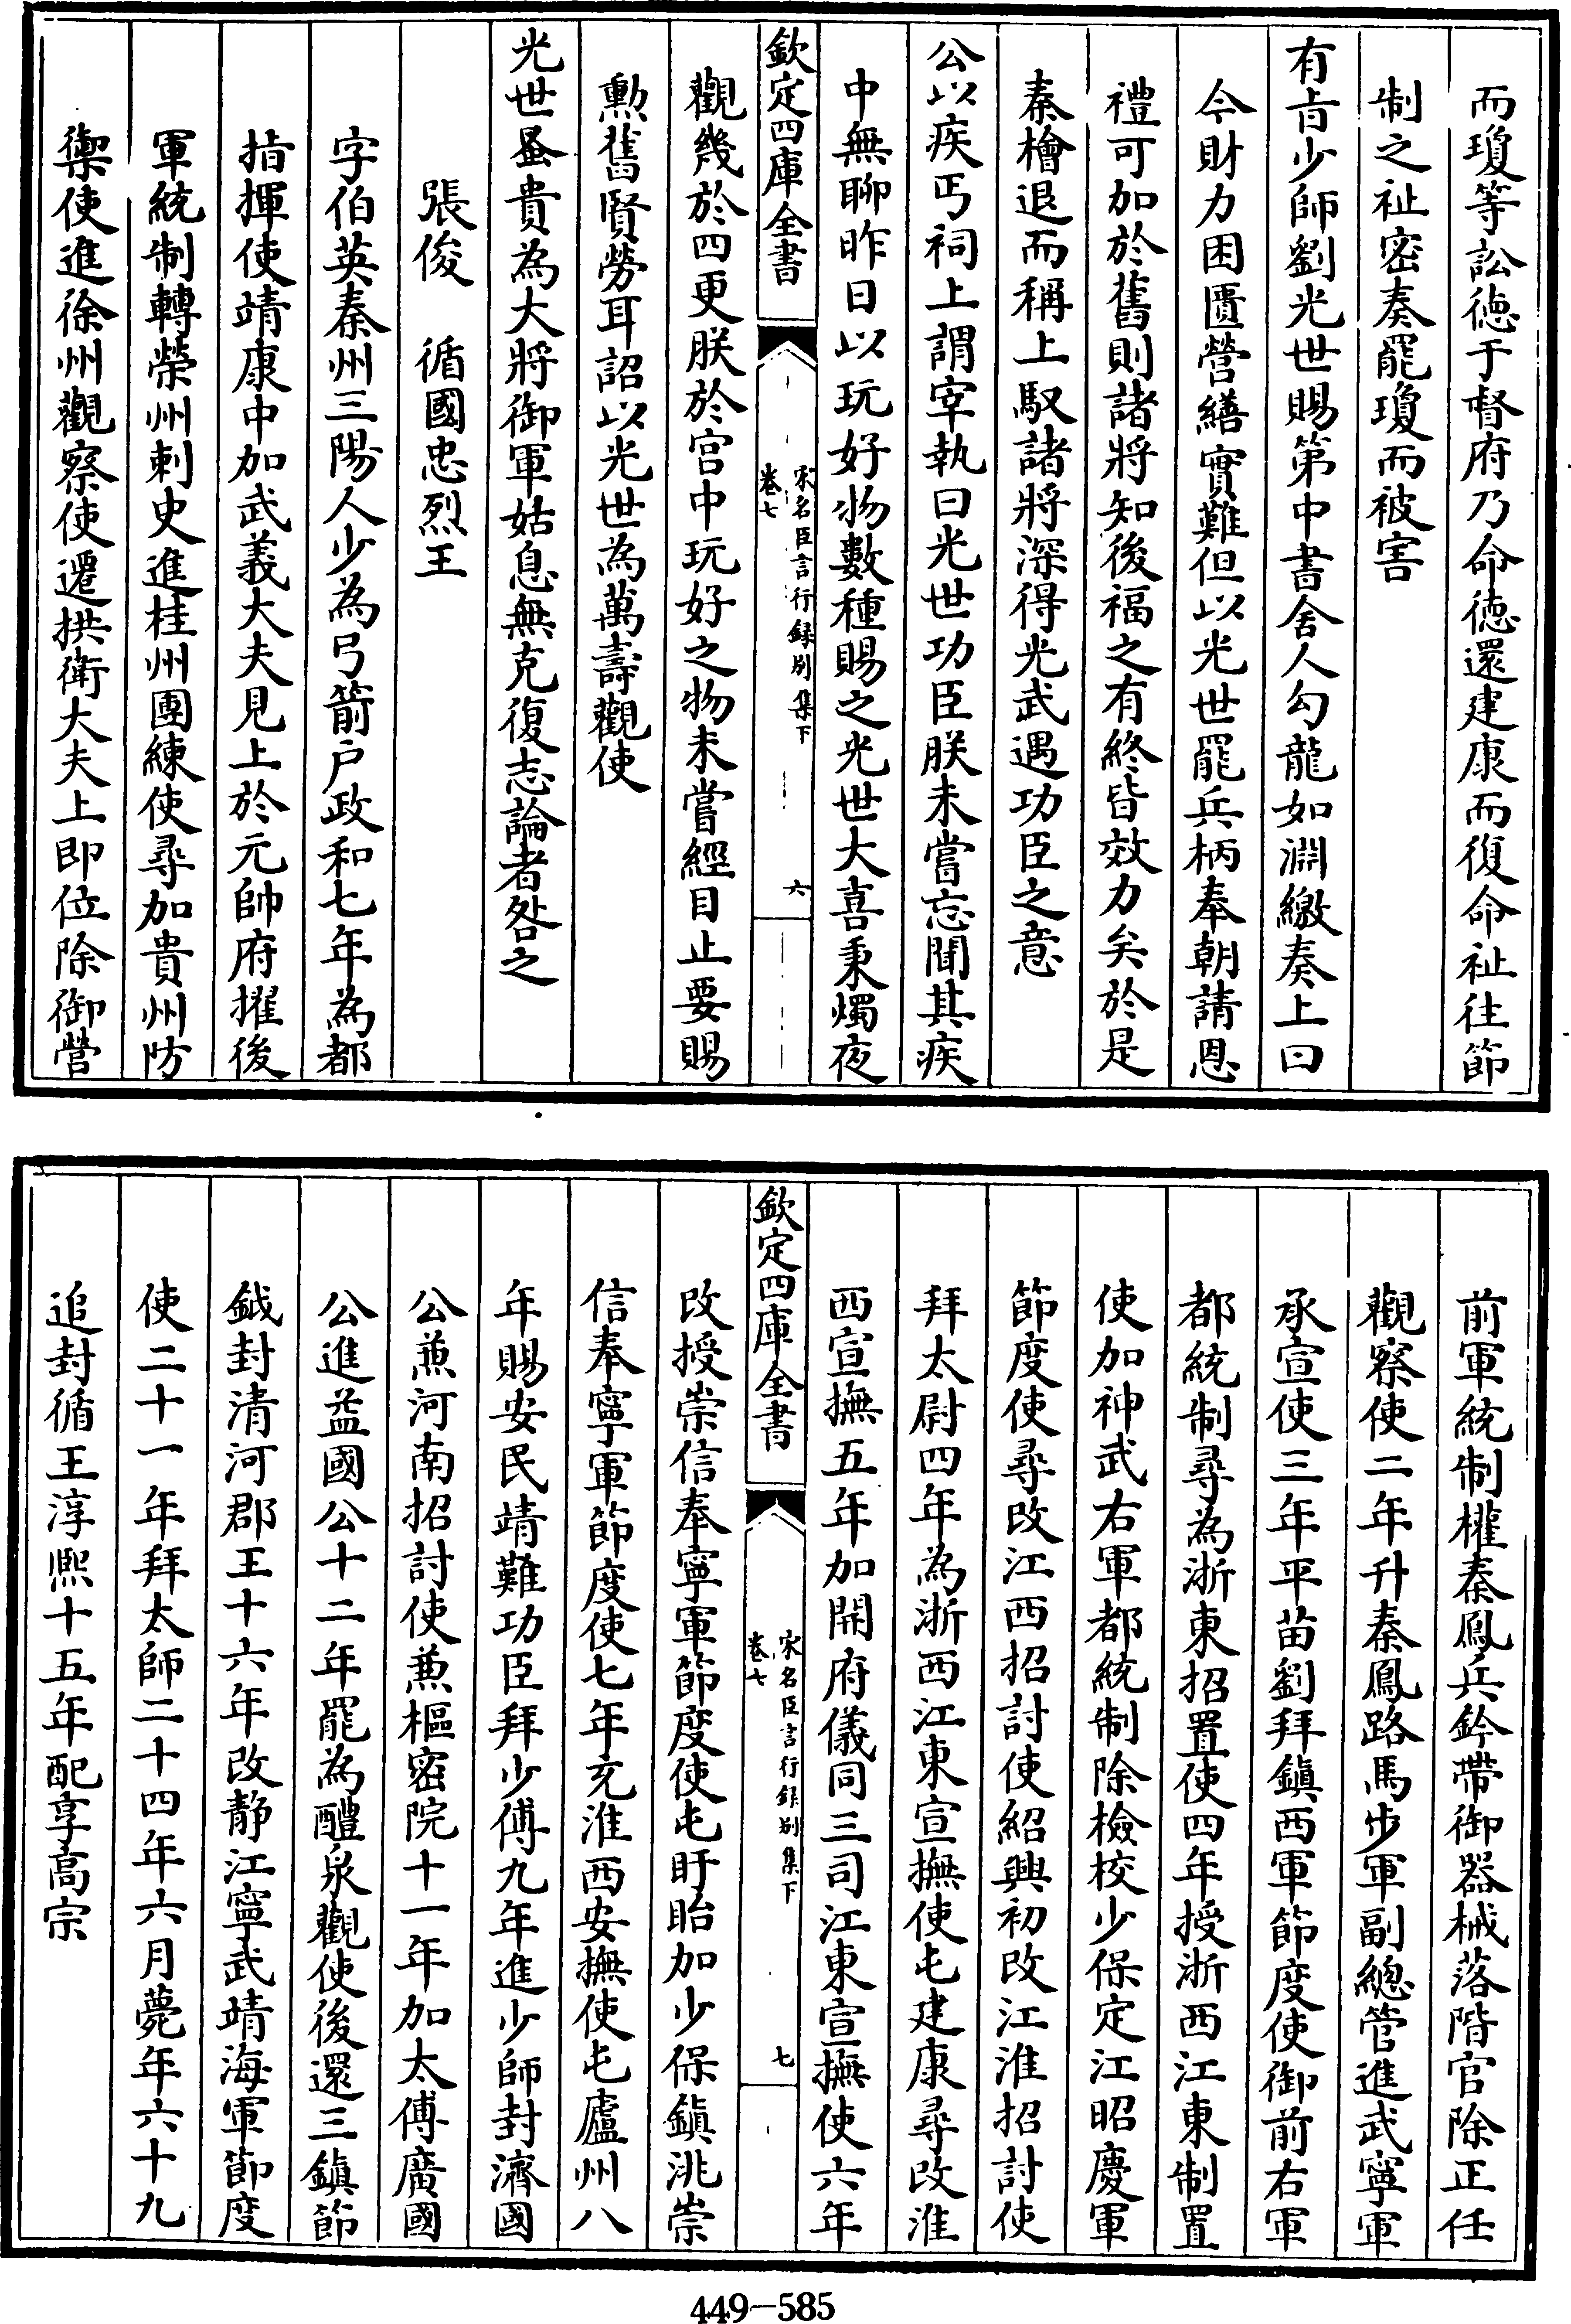 而瓊等訟徳于督府乃命徳還建康而復命祉往節
制之祉密奏罷瓊而被害
有㫖少師劉光世賜第中書舍人勾龍如淵繳奏上曰
今財力困匱營繕實難但以光世罷兵柄奉朝請恩
禮可加於舊則諸將知後福之有終皆效力矣於是
秦檜退而稱上馭諸將深得光武遇功臣之意
公以疾丐祠上謂宰執曰光世功臣朕未嘗忘聞其疾
中無聊昨日以玩好物數種賜之光世大喜秉燭夜
欽定四庫全書
宋名臣言行録别集下
卷七
六
觀幾於四更朕於宫中玩好之物未嘗經目止要賜
勲舊賢勞耳詔以光世為萬壽觀使
光世蚤貴為大將御軍姑息無克復志論者咎之
張俊 循國忠烈王
字伯英秦州三陽人少為弓箭户政和七年為都
指揮使靖康中加武義大夫見上於元帥府擢後
軍統制轉榮州刺史進桂州團練使尋加貴州防
禦使進徐州觀察使遷拱衛大夫上即位除御營
前軍統制權秦鳳兵鈐帶御器械落階官除正任
觀察使二年升秦鳳路馬步軍副總管進武寧軍
承宣使三年平苗劉拜鎮西軍節度使御前右軍
都統制尋為浙東招置使四年授浙西江東制置
使加神武右軍都統制除檢校少保定江昭慶軍
節度使尋改江西招討使紹興初改江淮招討使
拜太尉四年為浙西江東宣撫使屯建康尋改淮
西宣撫五年加開府儀同三司江東宣撫使六年
欽定四庫全書
宋名臣言行録别集下
卷七
七
改授崇信奉寧軍節度使屯盱眙加少保鎮洮崇
信奉寧軍節度使七年充淮西安撫使屯廬州八
年賜安民靖難功臣拜少傅九年進少師封濟國
公兼河南招討使兼樞密院十一年加太傅廣國
公進益國公十二年罷為醴泉觀使後還三鎮節
鉞封清河郡王十六年改静江寧武靖海軍節度
使二十一年拜太師二十四年六月薨年六十九
追封循王淳熙十五年配享高宗
449－585